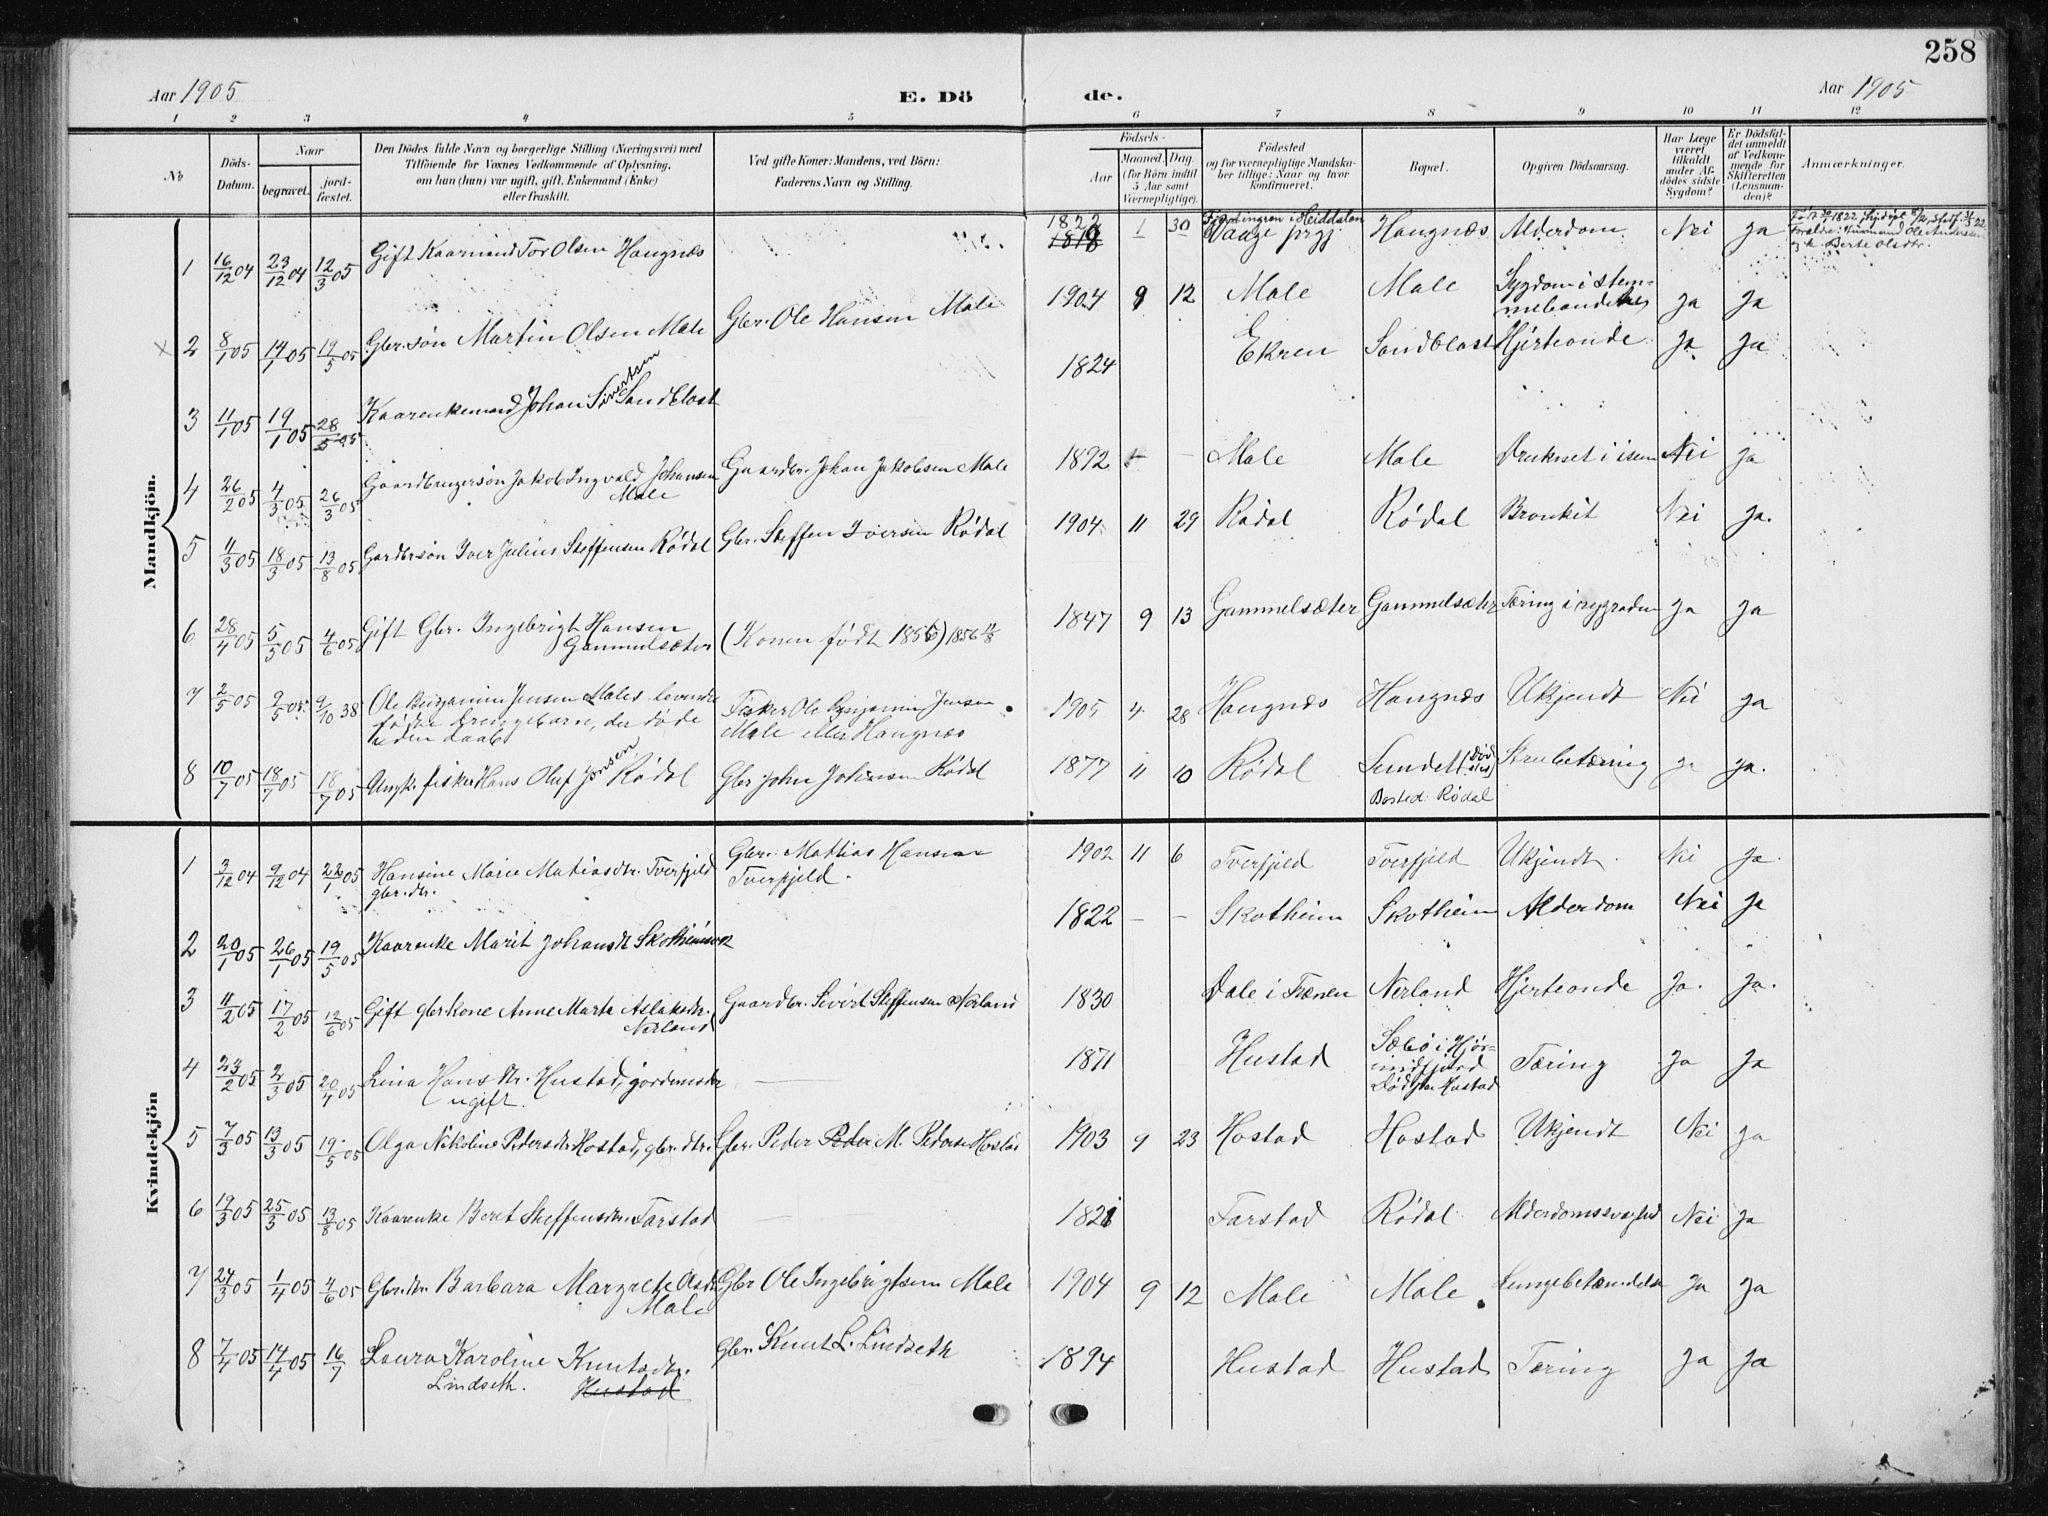 258
Aar 1905
E. Dö
de.
Aar 1905
1 2 3 4 5 6 7 8 9 10 11 12
No
Döds-Datum.
Naar
begravet.
jord-fæstet.
Den Dödes fulde Navn og borgerlige Stilling (Næringsvei) med
Tilföiende for Voxnes Vedkommende af Oplysning,
om han (hun) var ugift, gift, Enkemand (Enke)
eller fraskilt.
Ved gifte Koner: Mandens, ved Börn:
Faderens Navn og Stilling.
Födsels-
Aar
Maaned.
Dag.
(for Börn indtil
5 Aar samt
Værnepligtige).
Födested
og for værnepligtige Mandska-
ber tillige: Naar og hvor
konfirmeret.
Bopæl.
Opgiven Dödsaarsag.
Har Læge
været
tilkaldt
under Af-
dödes sidste
Sygdom?
Er Dödsfal-
det anmeldt
af Vedkom-
mende for
Skifteretten
(Lensman-
den)?
Anmærkninger.
Mandkjön.
1 16/12 04 23/12 04 12/3 05 Gift Kaarmand Tor Olsen Haugnæs 1822 1818 1 30 i Heiddalen Vaage prgj. Haugnæs Alderdom Nei Ja
Berte Olsdtr.
2 8/1 05 14/1 05 19/5 05 Gbr.søn Martin Olsen Male Gbr. Ole Hansen Male 1904 9 12 Male Male Sygdom i stem-
mebaandene Ja Ja
3 11/1 05 19/1 05 28/5 05 Kaarenkemand Johan Sivertsen Sandblast 1824 Ekren Sandblast Hjerteonde Ja Ja
4 26/2 05 4/3 05 26/3 05 Gaardbrugersøn Jakob Ingvald Johansen
Male Gaardbr. Johan Jakobsen Male 1892 - Male Male Druknet i isen Nei Ja
5 4/3 05 18/3 05 13/8 05 Gardbrsøn Iver Julius Steffensen Rödal Gbr. Steffen Iversen Rödal 1904 11 29 Rödal Rödal Bronkit Nei Ja.
6 28/4 05 5/5 05 4/6 05 Gift Gbr. Ingebrigt Hansen
Gammelsæter (Konen født 1856) 1856 1847 9 13 Gammelsæter Gammelsæter Tæring i rygraden Ja Ja
7 2/5 05 9/5 05 9/10 38 Ole Benjamin Jensen Males levende
fødte Drengebarn, der døde
uden daab Fisker Ole Benjamin Jensen
Male eller Haugnæs 1905 4 28 Haugnæs Haugnæs Ukjendt Nei Ja
8 10/7 05 18/7 05 18/7 05 Ungk. fisker Hans Oluf Jonsen Rödal Gbr John Johnsen Rödal 1877 11 10 Rödal Sundet
Bosted: Rödal Strubetæring Ja Ja.
Kvindekjön
1 3/12 04 9/12 04 22/1 05 Hansine Marie Matiasdtr. Tverfjeld
gbr.dtr. Gbr. Mathias Hansen
Tverfjeld. 1902 11 6 Tverfjeld Tverfjeld Ukjendt. Nei Ja.
2 20/1 05 26/1 05 19/5 05 Kaarenke Marit Johansdt Skotheim 1822 - - Skotheim Skotheim Alderdom Nei Ja
3 11/2 05 17/2 05 12/6 05 Gift gbrkone Anne Marta Aslaksdtr.
Nerland Gaardbr. Sivert Steffensen Nerland 1830 Dale i Frænen Nerland Hjerteonde Ja. Ja.
4 23/2 05 2/3 05 20/4 05 Lina Hansdtr. Hustad, jordmoder
ugift. — 1871 Hustad Sæbö i Hjör-
undfjord
Död paa Hustad Tæring Ja Ja
5 7/3 05 13/3 05 19/5 05 Olga Nikoline Pedersdtr Hostad, gbr.dtr. Gbr. Peder Peder M. Pedersen Hostad 1903 9 23 Hostad Hostad Ukjendt Nei Ja
6 19/3 05 25/3 05 13/8 05 Kaarenke Beret Steffensdtr. Farstad — 1821 Farstad Rödal Alderdomssvaghed Nei Ja
7 24/3 05 1/4 05 4/6 05 Gbr.dtr. Barbara Margrete Olsdtr
Male Gbr Ole Ingebrigtsen Male 1904 9 12 Male Male Lungebetændelse Ja Ja
8 7/4 05 14/4 05 16/7 Laura Karoline Knutsdtr.
Lindseth. Hustad Gbr. Knut L. Lindseth 1894 Hustad Hustad Tæring Ja Ja